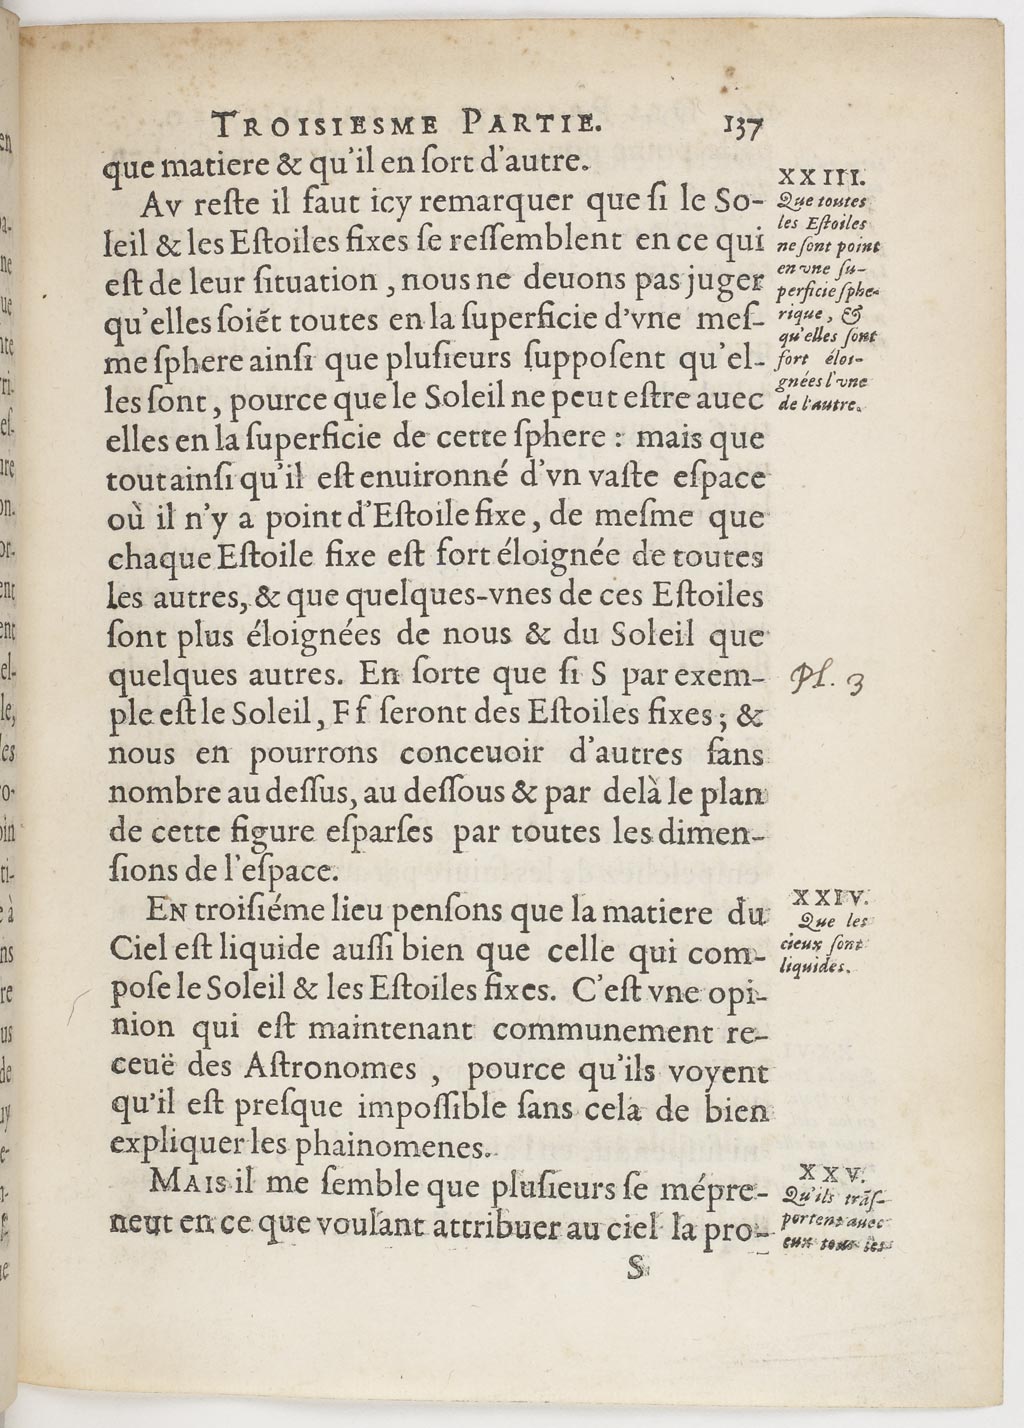 TROISIESME PARTIE. 137
que matiere & qu'il en ſort d'autre.
AV reſte il faut icy remarquer que ſi le So-
leil & les Eſtoiles fixes ſe reſſemblent en ce qui
eſt de leur ſituation, nous ne deuons pas juger
qu'elles ſoiẽt toutes en la ſuperficie d'vne meſ-
me ſphere ainſi que pluſieurs ſuppoſent qu'el-
les ſont, pource que le Soleil ne peut eſtre auec
elles en la ſuperficie de cette ſphere : mais que
tout ainſi qu'il eſt enuironné d'vn vaſte eſpace
où il n'y a point d'Eſtoile fixe, de meſme que
chaque Eſtoile fixe eſt fort éloignée de toutes
les autres, & que quelques-vnes de ces Eſtoiles
ſont plus éloignées de nous & du Soleil que
quelques autres. En ſorte que ſi S par exem-
ple eſt le Soleil, F f ſeront des Eſtoiles fixes; &
nous en pourrons conceuoir d'autres ſans
nombre au deſſus, au deſſous & par delà le plan
de cette figure eſparſes par toutes les dimen-
ſions de l'eſpace.
EN troiſiéme lieu penſons que la matiere du
Ciel eſt liquide auſſi bien que celle qui com-
poſe le Soleil & les Eſtoiles fixes. C'eſt vne opi-
nion qui eſt maintenant communement re-
ceuë des Aſtronomes , pource qu'ils voyent
qu'il eſt preſque impoſſible ſans cela de bien
expliquer les phainomenes.
MAIS il me ſemble que pluſieurs ſe mépre-
nent en ce que voulant attribuer au ciel la pro-
S
XXIII.
Que toutes
les Eſtoiles
ne ſont point
en vne ſu-
perficie ſphe-
rique, &
qu'elles ſont
fort éloi-
gnées l'vne
de l'autre.
Pl. 3
XXIV.
Que les
cieux ſont
liquides.
XXV.
Qu'ils trãſ-
portent auec
eux tous les